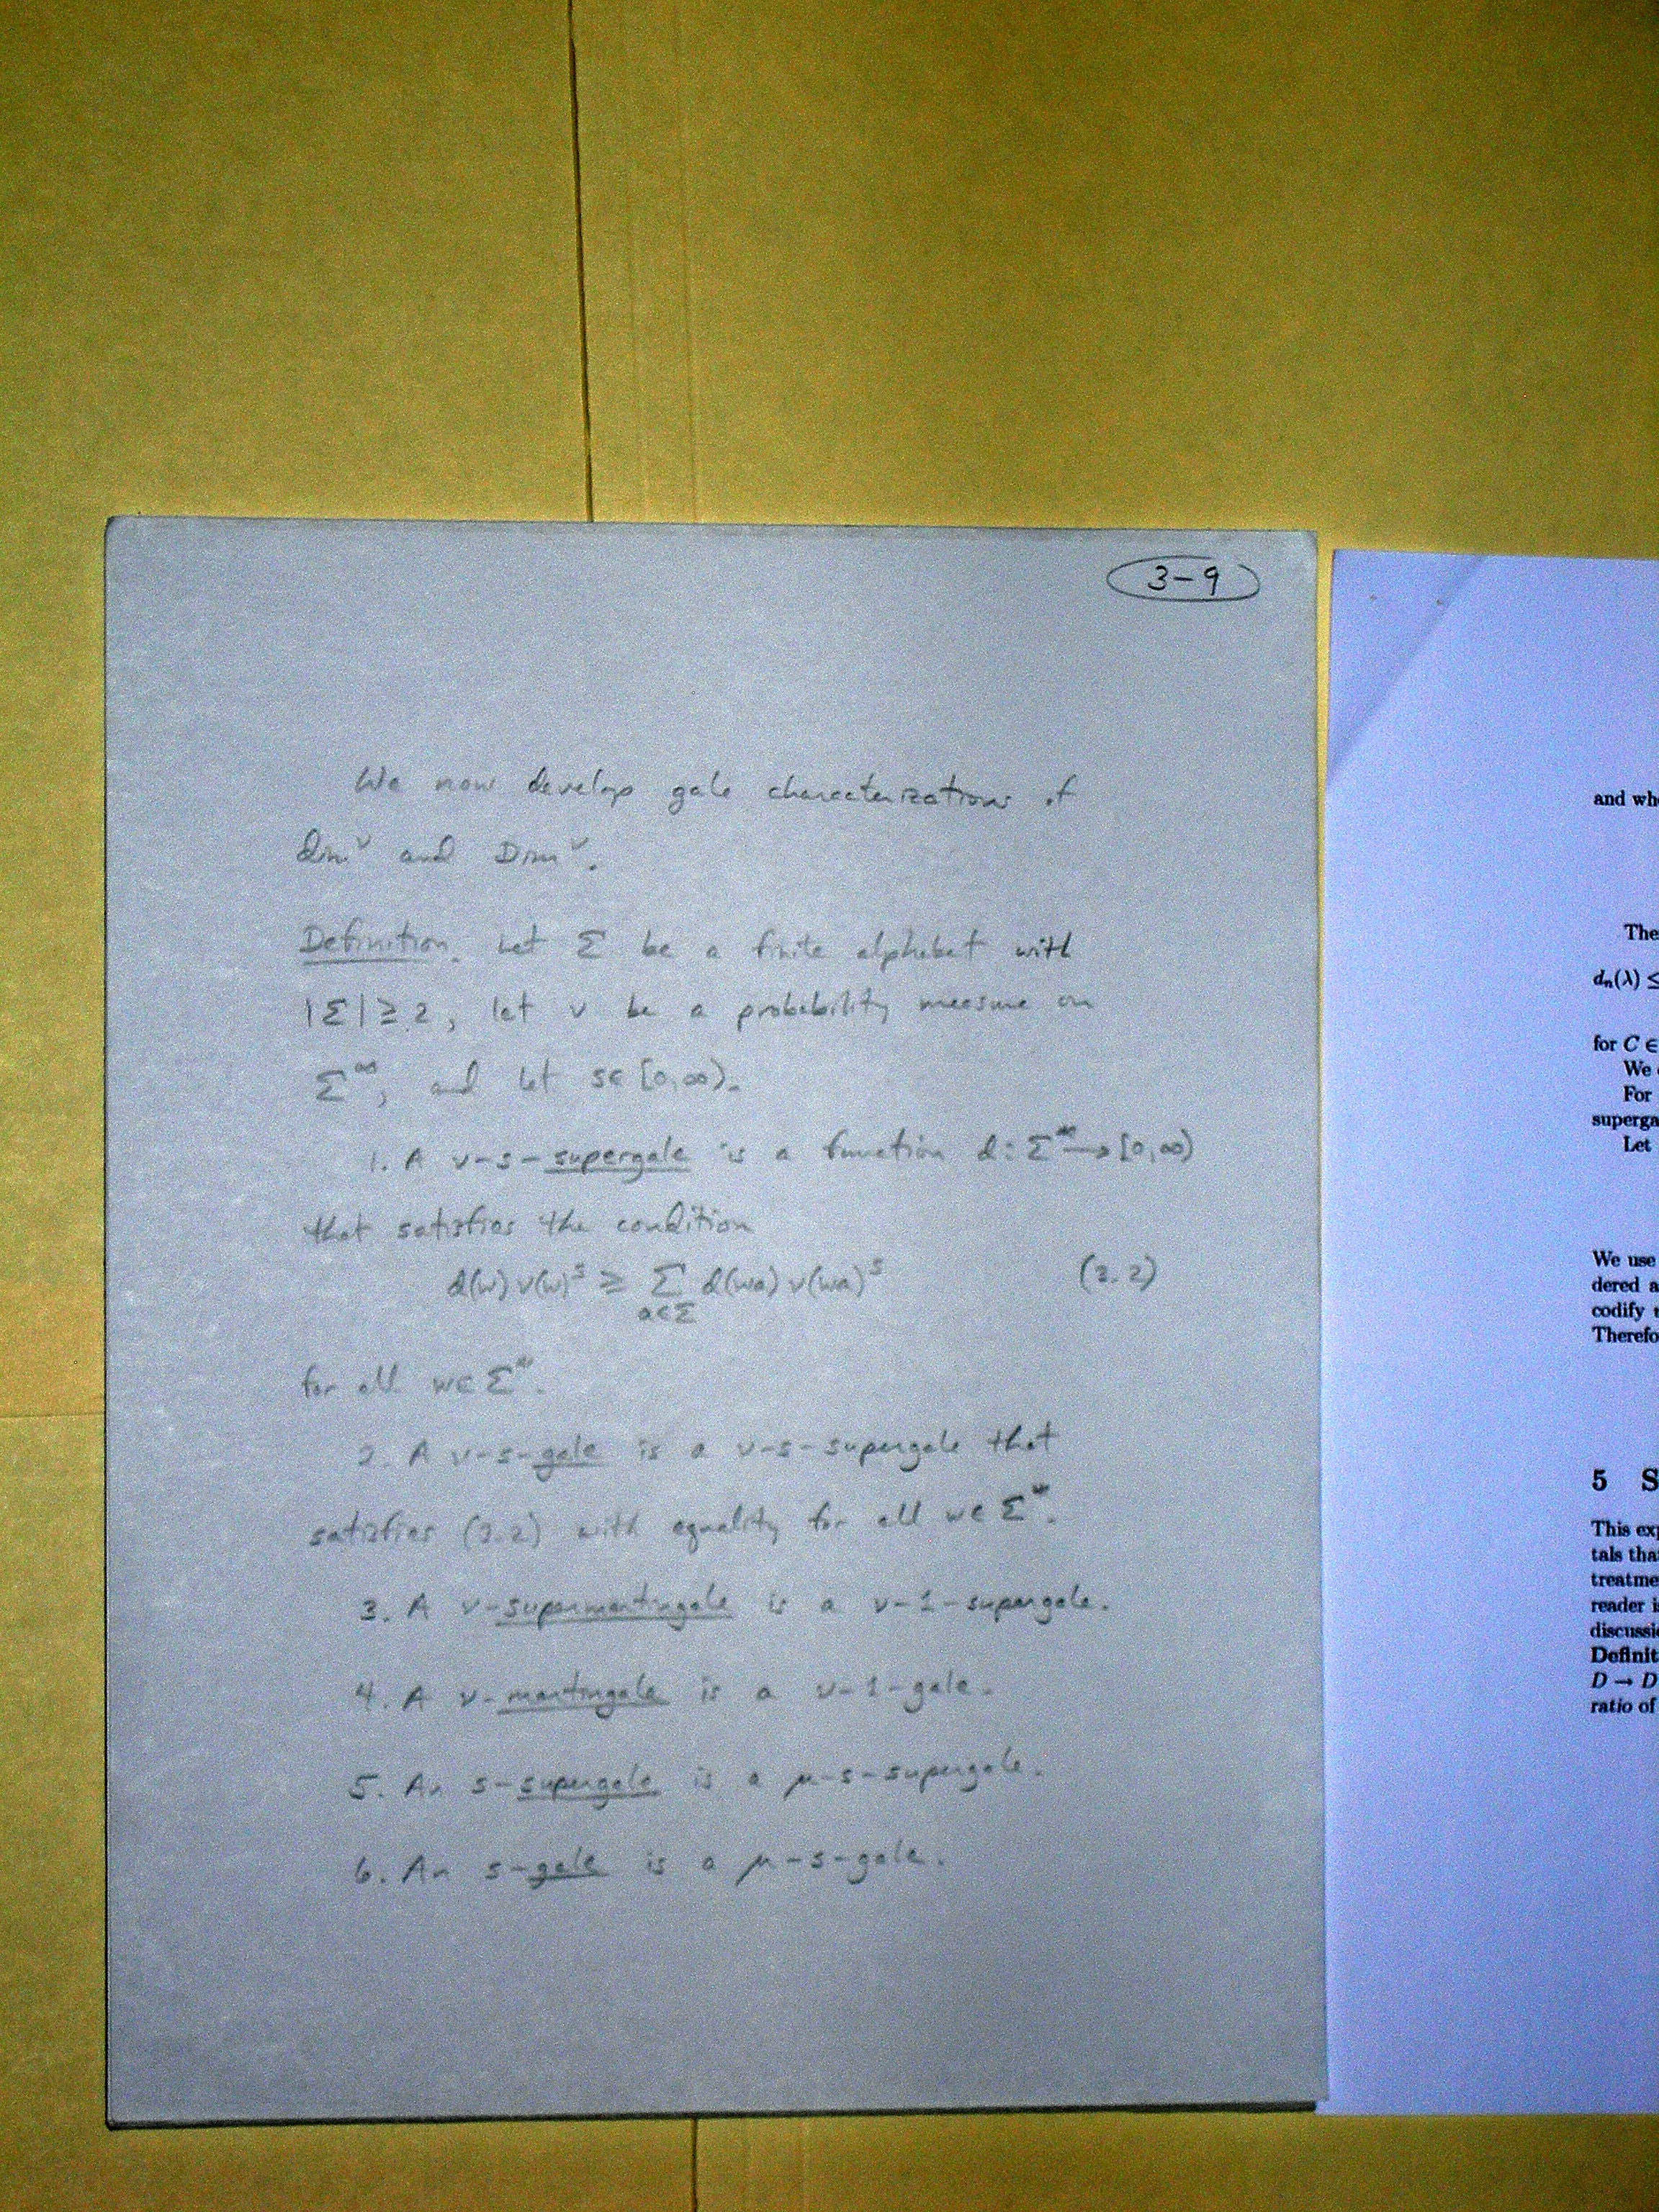 3-9
We now develop gale characterizations of
dim^ν and Dim^ν.
Definition. Let Σ be a finite alphabet with
|Σ| ≥ 2, let ν be a probability measure on
Σ^∞, and let s∈[0,∞).
1. A ν-s-supergale is a function d: Σ^*→[0,∞)
that satisfies the condition
d(w)ν(w)^s ≥ ∑_{a∈Σ} d(wa)ν(wa)^s (3.2)
for all w∈Σ^*.
2. A ν-s-gale is a ν-s-supergale that
satisfies (3.2) with equality for all w∈Σ^*.
3. A ν-supermartingale is a ν-1-supergale.
4. A ν-martingale is a ν-1-gale.
5. An s-supergale is a μ-s-supergale.
6. An s-gale is a μ-s-gale.
and
d_n(λ) ≤
for C ∈
We
For
Let
We use
dered a
codify
5 S
This
tals
reader
D → D
ratio of